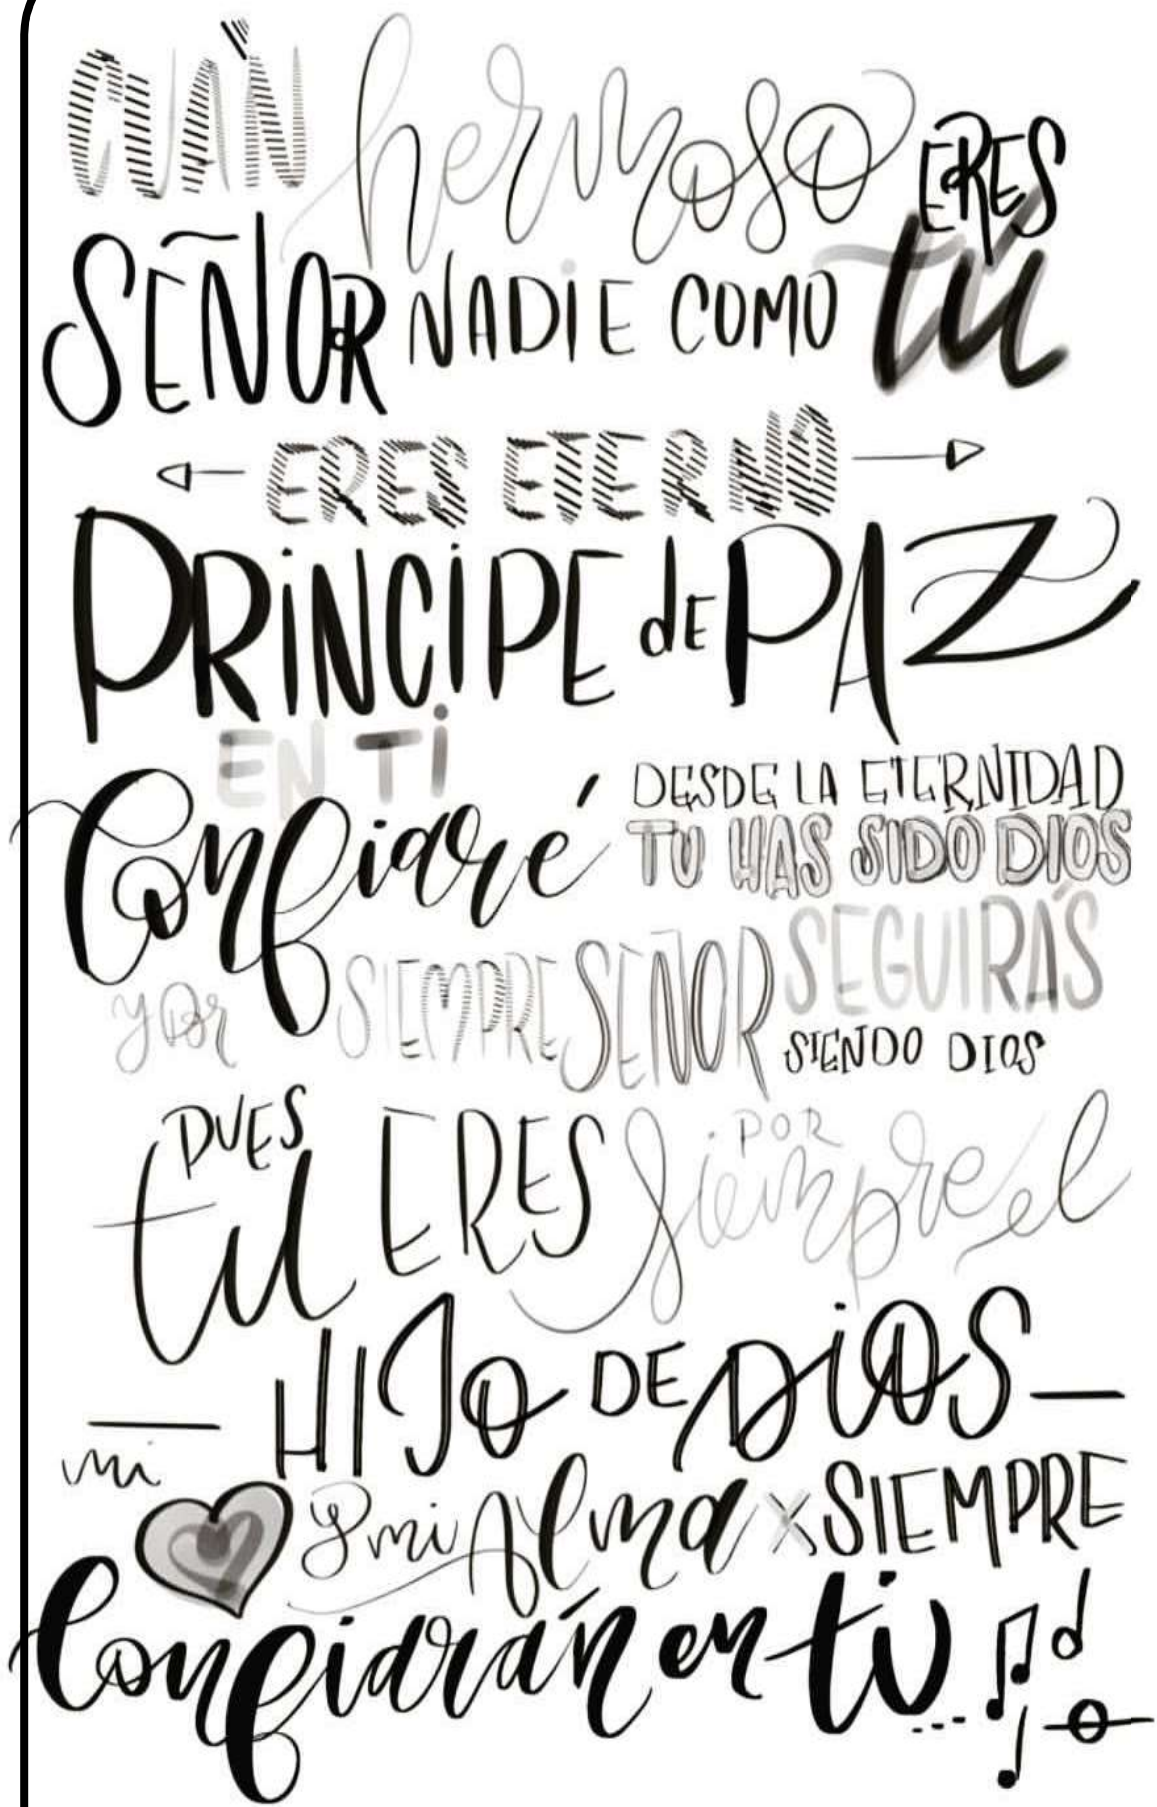 CUÁN hermoso ERES
SEÑOR NADiE COMO tú
ERES ETERNO
PRiNCiPE dE PAZ
EN Ti
Confiaré
DESDE LA ETERNIDAD
TU HAS SIDO DIOS
y por SIEMPRE SEÑOR SEGUIRÁS
SIENDO DIOS
PUES
tu ERES POR siempre el
HIJO DE DiOS
mi
y mi Alma x SIEMPRE
Confiarán en ti